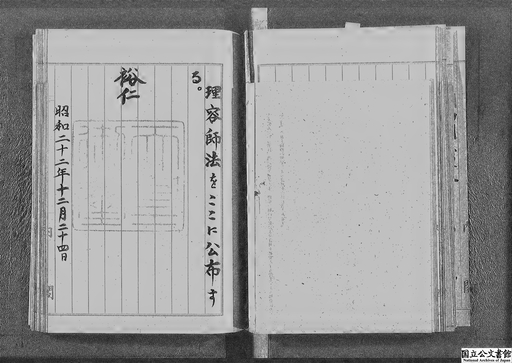 理容師法をここに公布す
る。
裕仁
昭和二十二年十二月二十四日
内
閣
国立公文書館
National Archives of Japan